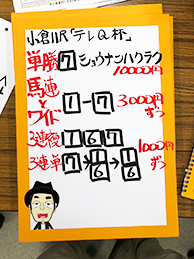 小倉11R「テレQ杯」
単勝 7 ショウナンハクラク
10000円
馬連
と
ワイド
1-7 3000円
ずつ
3連複 1 6 7
3連単 7→1 6→1 6
1000円
ずつ